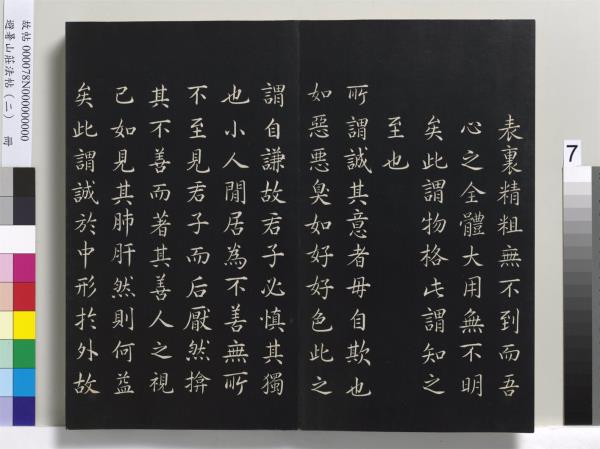 表裏精粗無不到而吾
心之全體大用無不明
矣此謂物格此謂知之
至也
所謂誠其意者毋自欺也
如惡惡臭如好好色此之
謂自謙故君子必慎其獨
也小人閒居為不善無所
不至見君子而后厭然揜
其不善而著其善人之視
己如見其肺肝然則何益
矣此謂誠於中形於外故
故帖 000078N000000000
避暑山莊法帖（二） 冊
7